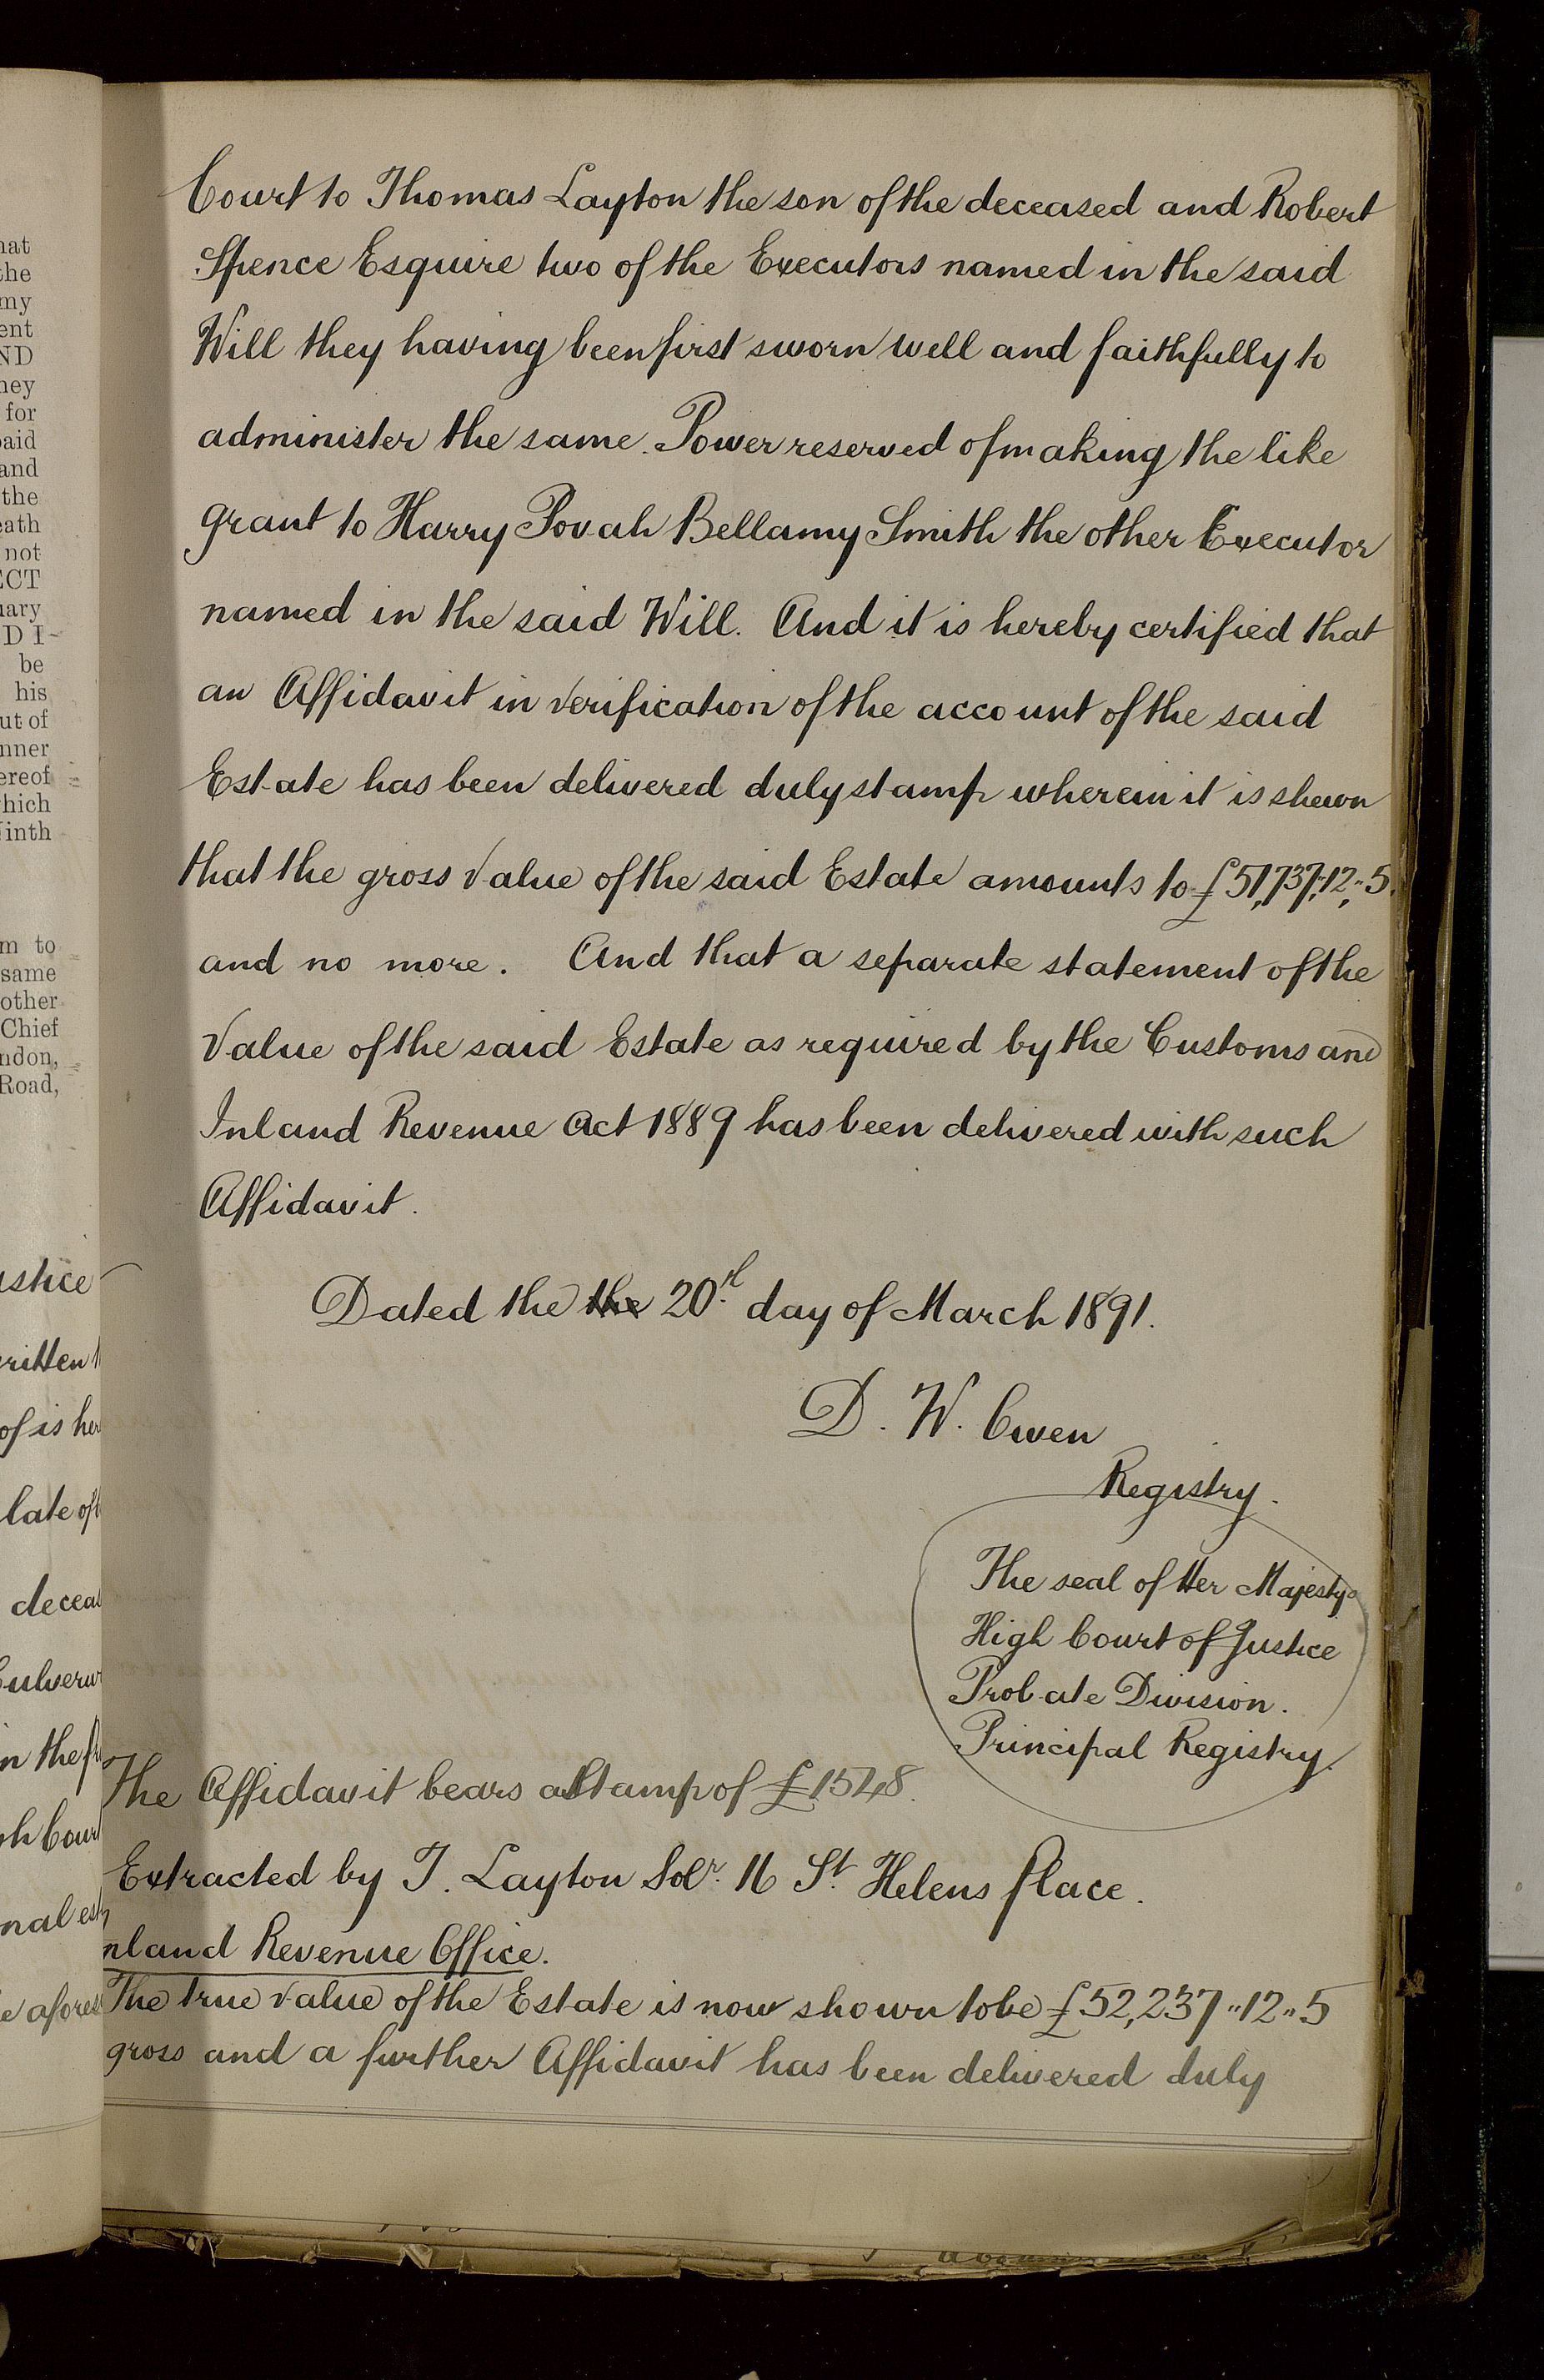 hat
the
my
ent
ND
ney
for
paid
and
the
eath
not
ECT
nary
D I-
be
his
ut of
nner
ereof
hich
inth
m to
same
other
Chief
ndon,
Road,
stice
ritten
of is her
late of
decea
ulverw
n the fi
h Cour
nal est
e afores
Court to Thomas Layton the son of the deceased and Robert
Spence Esquire two of the Executors named in the said
Will they having been first sworn well and faithfully to
administer the same. Power reserved of making the like
grant to Harry Povah Bellamy Smith the other Executor
named in the said Will. And it is hereby certified that
an Affidavit in verification of the account of the said
Estate has been delivered duly stamp wherein it is shewn
that the gross value of the said Estate amounts to £51,737,,12,,5.
and no more. And that a separate statement of the
value of the said Estate as required by the Customs and
Inland Revenue Act 1889 has been delivered with such
Affidavit.
Dated the the 20th day of March 1891.
D. W. Owen
Registry.
The seal of Her Majestys
High Court of Justice
Probate Division.
Principal Registry.
The Affidavit bears a Stamp of £1548.
Extracted by T. Layton Solr. 16 St. Helens place.
nland Revenue Office.
The true value of the Estate is now shown to be £52,237,,12,,5
gross and a further Affidavit has been delivered duly